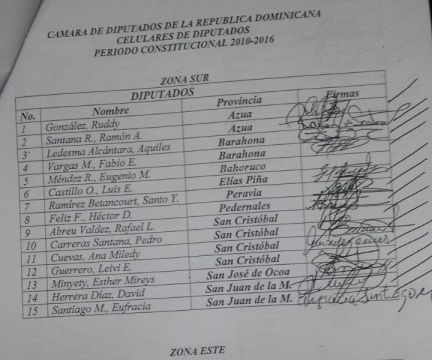 CAMARA DE DIPUTADOS DE LA REPUBLICA DOMINICANA
CELULARES DE DIPUTADOS
PERIODO CONSTITUCIONAL 2010-2016
ZONA SUR
DIPUTADOS
No. Nombre Provincia Firmas
1 González, Ruddy Azua
2 Santana R., Ramón A. Azua
3 Ledesma Alcántara, Aquiles Barahona
4 Vargas M., Fabio E. Barahona
5 Méndez R., Eugenio M. Bahoruco
6 Castillo O., Luis E. Elías Piña
7 Ramírez Betancourt, Santo Y. Peravia
8 Feliz F., Héctor D. Pedernales
9 Abreu Valdez, Rafael L. San Cristóbal
10 Carreras Santana, Pedro San Cristóbal
11 Cuevas, Ana Miledy San Cristóbal
12 Guerrero, Leivi E. San Cristóbal
13 Minyety, Esther Mireys San José de Ocoa
14 Herrera Díaz, David San Juan de la M.
15 Santiago M., Eufracia San Juan de la M.
ZONA ESTE